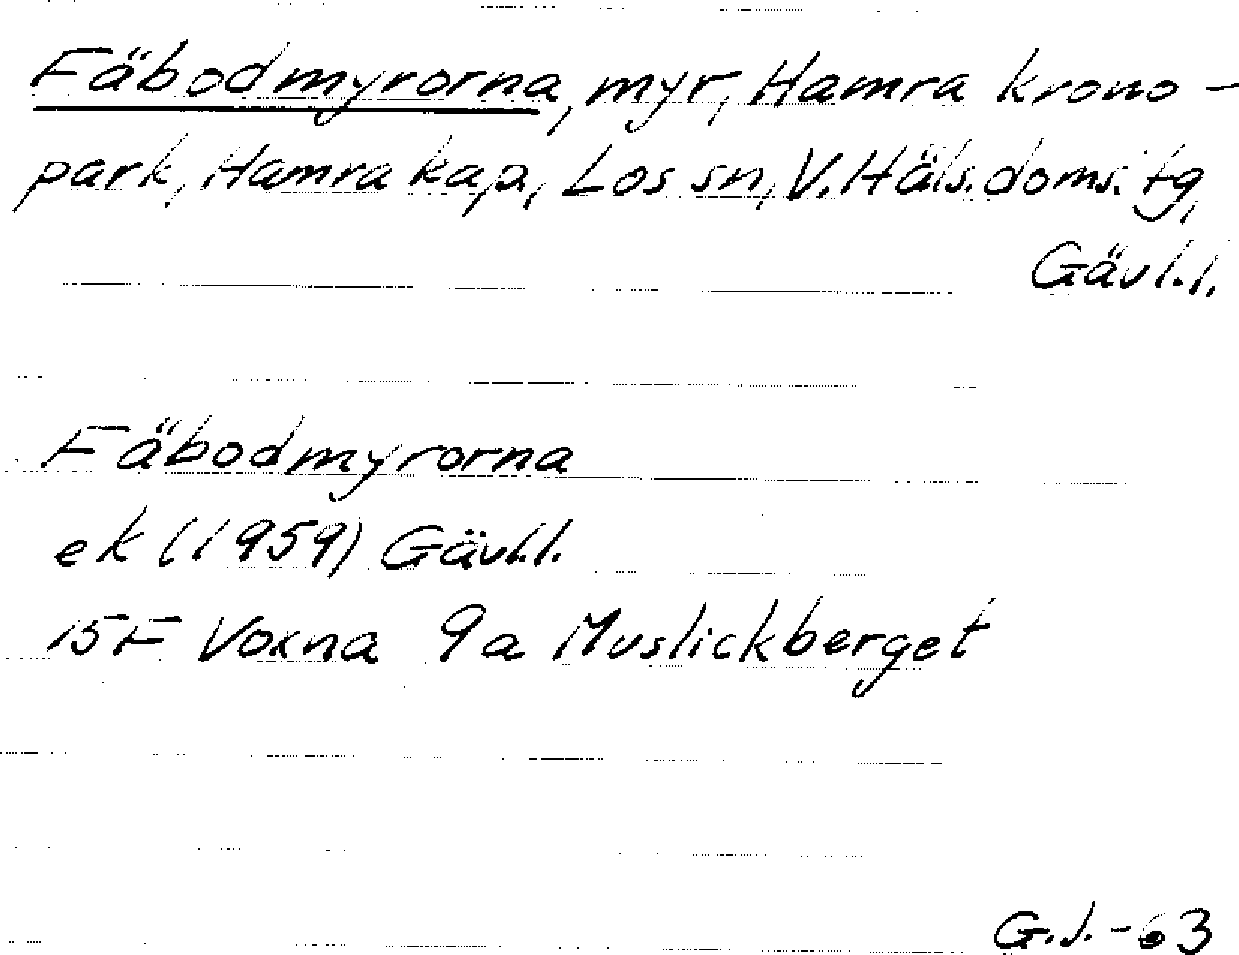 Fäbodmyrorna, myr, Hamra krono-
park, Hamra kap, Los sn, V. Häls. doms. tg,
Gävl.l.
Fäbodmyrorna
ek (1959) Gävl.l.
15F Voxna 9a Muslickberget
G.J.-63